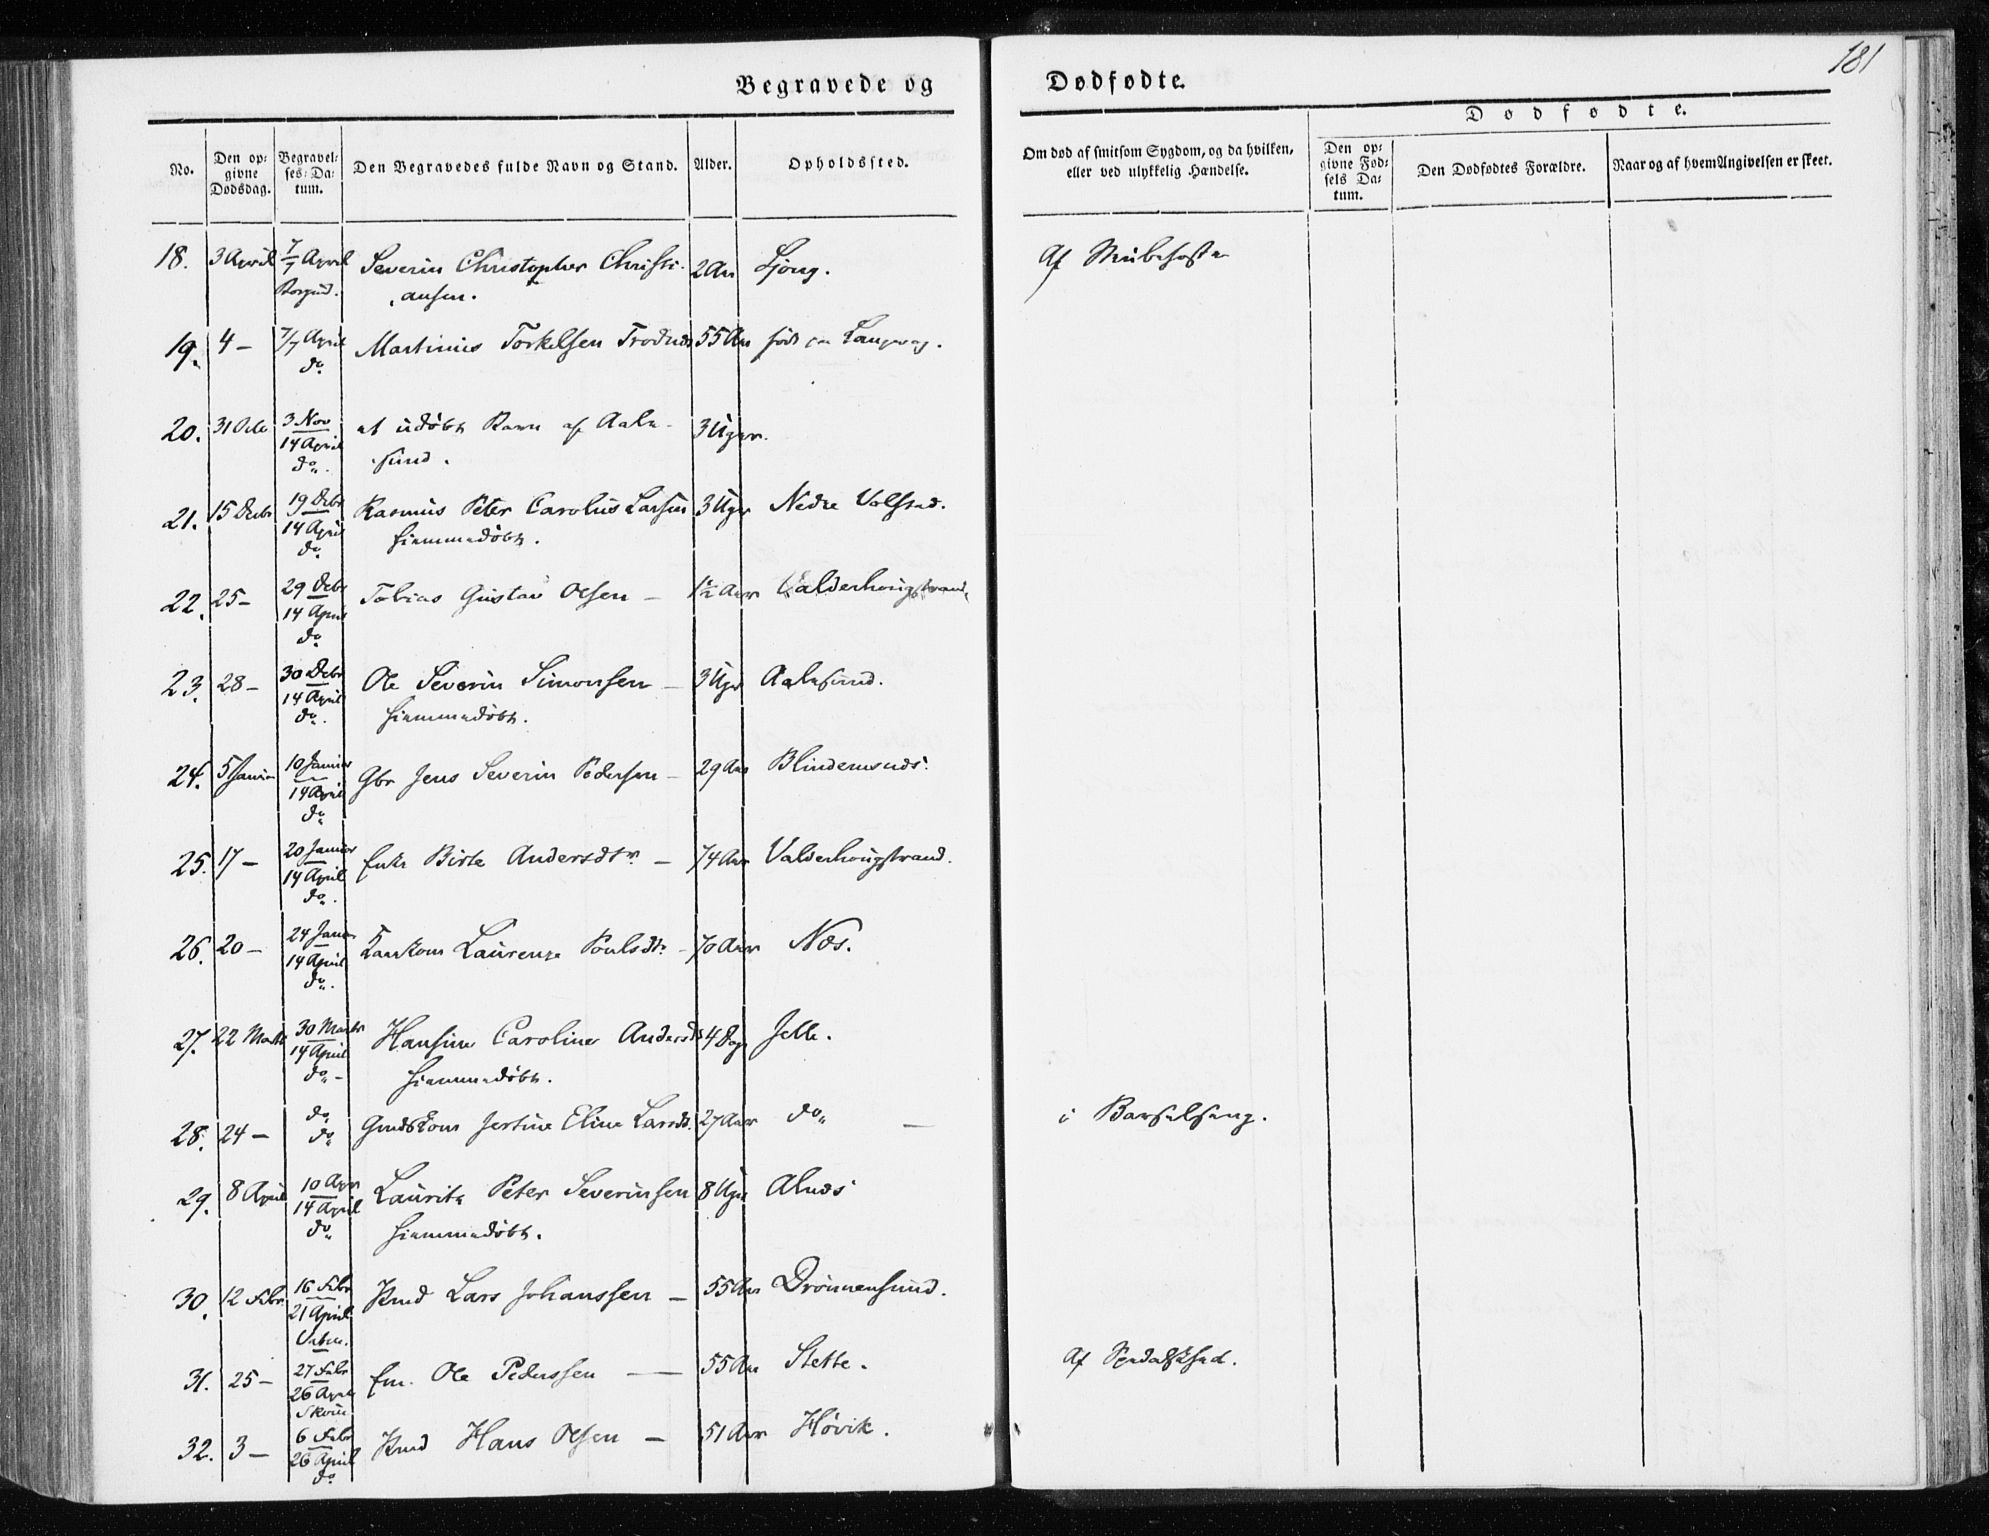 181
Begravede og Dødfødte.
No.
Den opgivne Dødsdag.
Begravelses-Datum.
Den Begravedes fulde Navn og Stand.
Alder.
Opholdssted.
Om død af smitsom Sygdom, og da hvilken, eller ved ulykkelig Hændelse.
Dødfødte.
Den opgivne Fødsels Datum.
Den Dødfødtes Forældre.
Naar og af hvem Angivelsen er skeet.
18. 3 April 7/7 April Severin Christopher Christi- 2 Aar Af
Borgund. ansen.
19. 4 – 7/7 April Martinus Torkelsen 55 Aar født paa Langevaag.
do
20. 31 Octb 3 Nov et udøbt Barn af Aale- 3 Uger.
14 April sund.
do.
21. 15 Decbr 19 Decbr Rasmus Peter Carolus Larsen 3 Uger Nedre Volsdad.
14 April hiemmedøbt.
do
22. 25 – 29 Decbr Tobias Gustav Olsen – 1½ Aar Valderhougstrand.
14 April
do
23. 28 – 30 Decbr Ole Severin Simonsen – 3 Uger Aalesund.
14 April hiemmedøbt.
do.
24. 5 Januar 10 Januar Gbr Jens Severin Pedersen – 29 Aar Blindemsnæs.
14 April
do
25. 17 – 20 Januar Enke Birte Andersdtr. – 74 Aar Valderhougstrand.
14 April
do.
26. 20 – 24 Janr Laurenze Poulsdtr. – 70 Aar Næs.
14 April
do.
27. 22 Marts 30 Marts Hansine Caroline Andersd 4 Dage Jelle.
14 April hiemmedøbt.
do –
28. 24 – do Gmdskone Jertine Eline Larsd. 27 Aar do – i Barselseng.
do
29. 8 April 10 Apr Lauritz Peter Severinsen 8 Uger Alnæs
14 April hiemmedøbt.
do
30. 12 Febr. 16 Febr Kmd Lars Johanssen – 55 Aar Drønnensund.
21 April
Vatne.
31. 25 – 27 Febr Em. Ole Pederssen – 55 Aar Stette. Af Spedalskhed.
26 April
Skoue
32. 3 – 6 Febr Kmd Hans Olsen – 51 Aar Høvik.
26 April
do